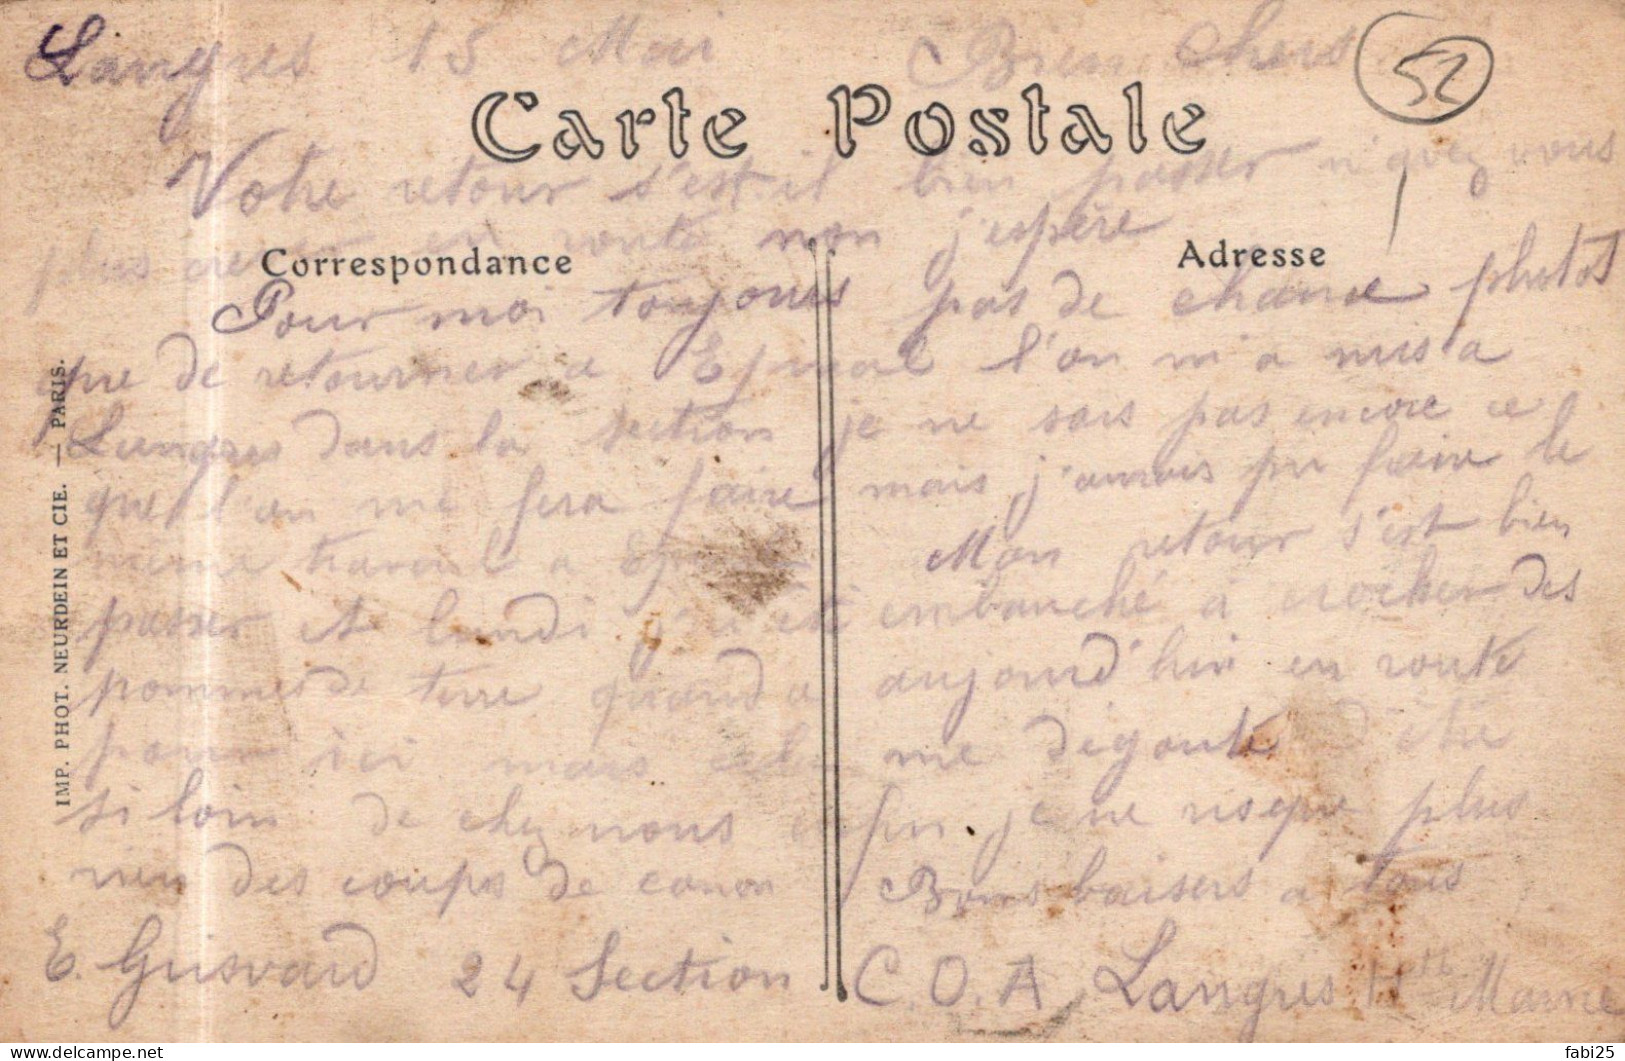 Langres 15 Mai Bien Chers
52
Carte Postale
Votre retour s'est-il bien passer n'avez vous
plus crever en route non j'espère
Correspondance
Adresse
Pour moi toujours pas de chance plutot
que de retourner a Epinal l'on m'a mis a
Langres dans la section je ne sais pas encore ce
que l'on me fera faire mais j'aurais pu faire le
même travail a Epinal Mon retour s'est bien
passer et lundi j'ai été embauché à des
pommes de terre quand a aujourd'hui en route
pour ici mais cela me dégoute d'être
si loin de chez nous enfin je ne risque plus
rien des coups de canon Bons baisers a tous
E. 24 Section C.O.A Langres Hte Marne
IMP. PHOT. NEURDEIN ET CIE. — PARIS.
fabi25